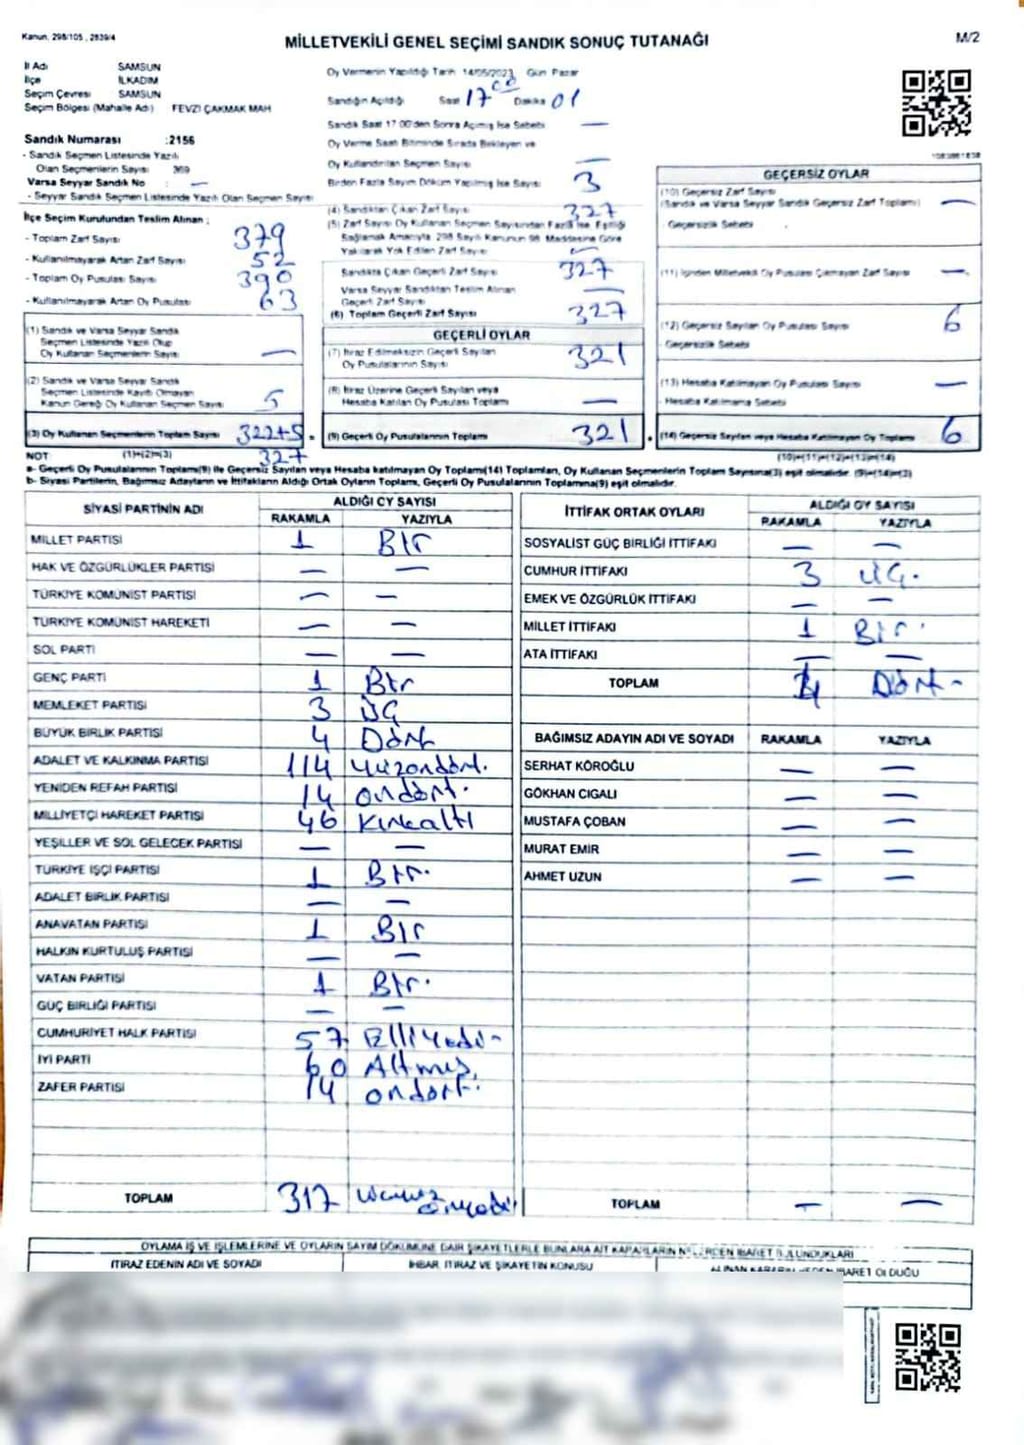 Kanun, 298/105 , 2839/4
MİLLETVEKİLİ GENEL SEÇİMİ SANDIK SONUÇ TUTANAĞI
M/2
İl Adı SAMSUN
İlçe İLKADIM
Seçim Çevresi SAMSUN
Seçim Bölgesi (Mahalle Adı) FEVZİ ÇAKMAK MAH
Sandık Numarası :2156
- Sandık Seçmen Listesinde Yazılı
Olan Seçmenlerin Sayısı 369
Varsa Seyyar Sandık No : —
- Seyyar Sandık Seçmen Listesinde Yazılı Olan Seçmen Sayısı
İlçe Seçim Kurulundan Teslim Alınan ;
- Toplam Zarf Sayısı 379
- Kullanılmayarak Artan Zarf Sayısı 52
- Toplam Oy Pusulası Sayısı 390
- Kullanılmayarak Artan Oy Pusulası 63
(1) Sandık ve Varsa Seyyar Sandık
Seçmen Listesinde Yazılı Olup
Oy Kullanan Seçmenlerin Sayısı —
(2) Sandık ve Varsa Seyyar Sandık
Seçmen Listesinde Kayıtlı Olmayan
Kanun Gereği Oy Kullanan Seçmen Sayısı 5
(3) Oy Kullanan Seçmenlerin Toplam Sayısı 322+5
327
Oy Vermenin Yapıldığı Tarih 14/05/2023 Gün Pazar
Sandığın Açıldığı Saat 17 00 Dakika 01
Sandık Saat 17:00'den Sonra Açılmış İse Sebebi —
Oy Verme Saati Bitiminde Sırada Bekleyen ve
Oy Kullandırılan Seçmen Sayısı —
Birden Fazla Sayım Döküm Yapılmış İse Sayısı 3
(4) Sandıktan Çıkan Zarf Sayısı 327
(5) Zarf Sayısı Oy Kullanan Seçmen Sayısından Fazla İse, Eşitliği
Sağlamak Amacıyla 298 Sayılı Kanunun 98. Maddesine Göre
Yakılarak Yok Edilen Zarf Sayısı —
Sandıkta Çıkan Geçerli Zarf Sayısı 327
Varsa Seyyar Sandıktan Teslim Alınan
Geçerli Zarf Sayısı —
(6) Toplam Geçerli Zarf Sayısı 327
GEÇERLİ OYLAR
(7) İtiraz Edilmeksizin Geçerli Sayılan
Oy Pusulalarının Sayısı 321
(8) İtiraz Üzerine Geçerli Sayılan veya
Hesaba Katılan Oy Pusulası Toplamı —
(9) Geçerli Oy Pusulalarının Toplamı 321
GEÇERSİZ OYLAR
(10) Geçersiz Zarf Sayısı
(Sandık ve Varsa Seyyar Sandık Geçersiz Zarf Toplamı) —
- Geçersizlik Sebebi
(11) İçinden Milletvekili Oy Pusulası Çıkmayan Zarf Sayısı —
(12) Geçersiz Sayılan Oy Pusulası Sayısı 6
- Geçersizlik Sebebi
(13) Hesaba Katılmayan Oy Pusulası Sayısı —
- Hesaba Katılmama Sebebi
(14) Geçersiz Sayılan veya Hesaba Katılmayan Oy Toplamı 6
NOT: (1)+(2)=(3) (10)+(11)+(12)+(13)=(14)
a- Geçerli Oy Pusulalarının Toplamı(9) ile Geçersiz Sayılan veya Hesaba katılmayan Oy Toplamı(14) Toplamları, Oy Kullanan Seçmenlerin Toplam Sayısına(3) eşit olmalıdır. (9)+(14)=(3)
b- Siyasi Partilerin, Bağımsız Adayların ve İttifakların Aldığı Ortak Oyların Toplamı, Geçerli Oy Pusulalarının Toplamına(9) eşit olmalıdır.
SİYASİ PARTİNİN ADI ALDIĞI OY SAYISI
RAKAMLA YAZIYLA
MİLLET PARTİSİ 1 Bir
HAK VE ÖZGÜRLÜKLER PARTİSİ — —
TÜRKİYE KOMÜNİST PARTİSİ — —
TÜRKİYE KOMÜNİST HAREKETİ — —
SOL PARTİ — —
GENÇ PARTİ 1 Bir
MEMLEKET PARTİSİ 3 ÜÇ
BÜYÜK BİRLİK PARTİSİ 4 Dört
ADALET VE KALKINMA PARTİSİ 114 Yüzondört.
YENİDEN REFAH PARTİSİ 14 ondört.
MİLLİYETÇİ HAREKET PARTİSİ 46 Kırkaltı
YEŞİLLER VE SOL GELECEK PARTİSİ — —
TÜRKİYE İŞÇİ PARTİSİ 1 Bir.
ADALET BİRLİK PARTİSİ — —
ANAVATAN PARTİSİ 1 Bir
HALKIN KURTULUŞ PARTİSİ — —
VATAN PARTİSİ 1 Bir.
GÜÇ BİRLİĞİ PARTİSİ — —
CUMHURİYET HALK PARTİSİ 57 Elliyedi-
İYİ PARTİ 60 Altmış.
ZAFER PARTİSİ 14 ondört.
TOPLAM 317
İTTİFAK ORTAK OYLARI ALDIĞI OY SAYISI
RAKAMLA YAZIYLA
SOSYALİST GÜÇ BİRLİĞİ İTTİFAKI — —
CUMHUR İTTİFAKI 3 ÜÇ.
EMEK VE ÖZGÜRLÜK İTTİFAKI — —
MİLLET İTTİFAKI 1 Bir.
ATA İTTİFAKI — —
TOPLAM 4 Dört-
BAĞIMSIZ ADAYIN ADI VE SOYADI RAKAMLA YAZIYLA
SERHAT KÖROĞLU — —
GÖKHAN CIGALI — —
MUSTAFA ÇOBAN — —
MURAT EMİR — —
AHMET UZUN — —
TOPLAM — —
OYLAMA İŞ VE İŞLEMLERİNE VE OYLARIN SAYIM DÖKÜMÜNE DAİR ŞİKAYETLERLE BUNLARA AİT KARARLARIN NELERDEN İBARET BULUNDUKLARI
İTİRAZ EDENİN ADI VE SOYADI İHBAR, İTİRAZ VE ŞİKAYETİN KONUSU ALINAN KARARIN NEDEN İBARET OLDUĞU